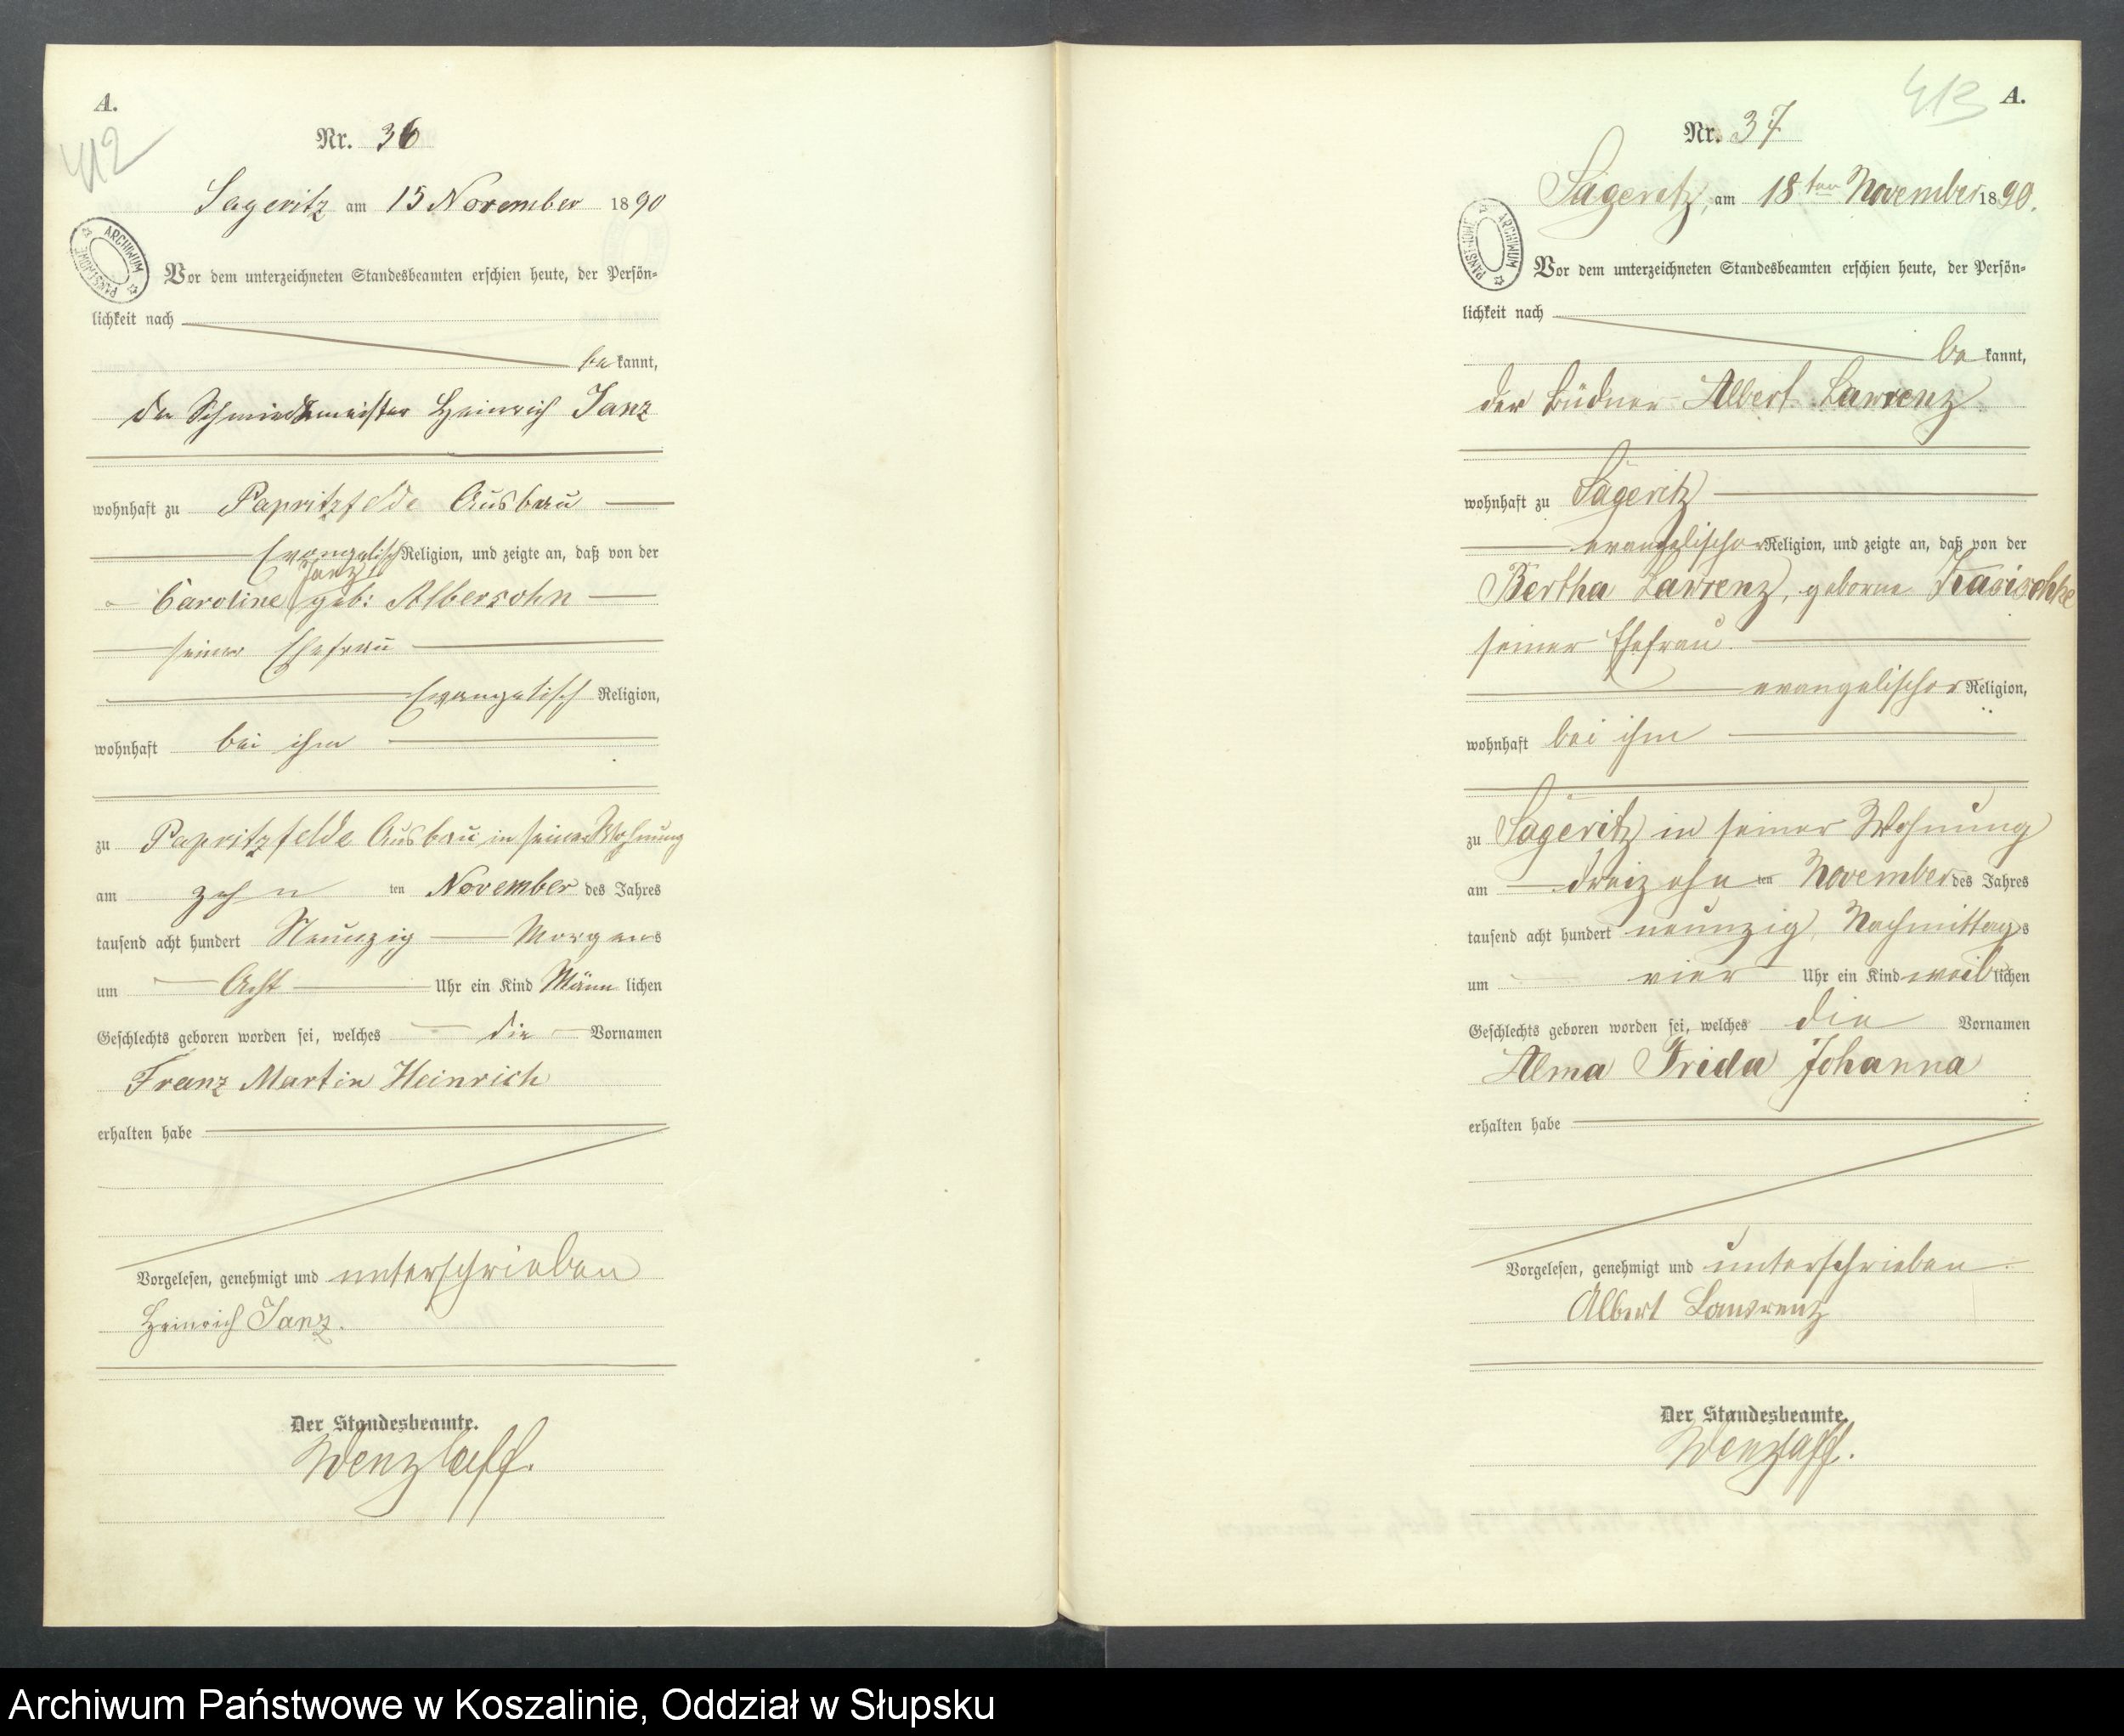 A.
412
Nr. 36
Sageritz am 15 November 1890
ARCHIWUM PAŃSTWOWE
Vor dem unterzeichneten Standesbeamten erschien heute, der Persön-
lichkeit nach
be kannt,
der Schmiedemeister Heinrich Janz
wohnhaft zu Papritzfelde Ausbau
Evangelisch Religion, und zeigte an, daß von der
Janz
Caroline geb: Albersohn
seiner Ehefrau
Evangelisch Religion,
wohnhaft bei ihm
zu Papritzfelde Ausbau in seiner Wohnung
am zehn ten November des Jahres
tausend acht hundert Neunzig Morgens
um Acht Uhr ein Kind Männ lichen
Geschlechts geboren worden sei, welches die Vornamen
Franz Martin Heinrich
erhalten habe
Vorgelesen, genehmigt und unterschrieben
Heinrich Janz.
Der Standesbeamte.
Wenzlaff.
413 A.
Nr. 37
Sageritz, am 18ten November 1890.
ARCHIWUM PAŃSTWOWE
Vor dem unterzeichneten Standesbeamten erschien heute, der Persön-
lichkeit nach
be kannt,
der Büdner Albert Lawrenz
wohnhaft zu Sageritz
evangelischer Religion, und zeigte an, daß von der
Bertha Lawrenz, geborne
seiner Ehefrau
evangelischer Religion,
wohnhaft bei ihm
zu Sageritz in seiner Wohnung
am dreizehn ten November des Jahres
tausend acht hundert neunzig Nachmittags
um vier Uhr ein Kind weib lichen
Geschlechts geboren worden sei, welches die Vornamen
Alma Frida Johanna
erhalten habe
Vorgelesen, genehmigt und unterschrieben.
Albert Lawrenz
Der Standesbeamte.
Wenzlaff.
Archiwum Państwowe w Koszalinie, Oddział w Słupsku